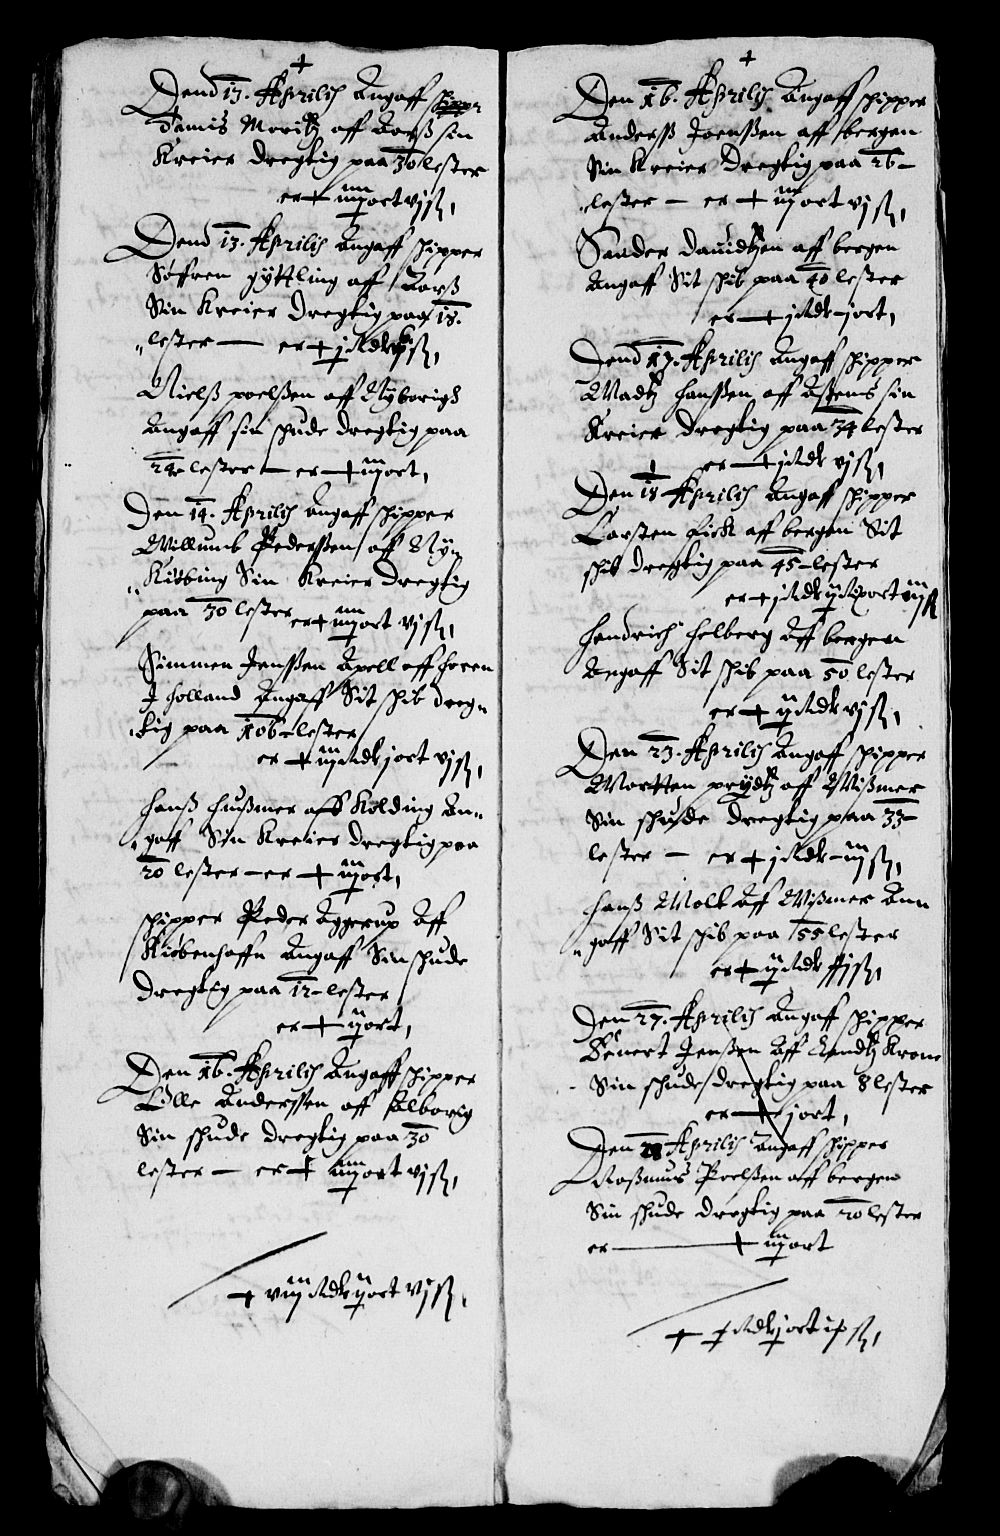 +
Dend 13. Aprilis Angaff skipper
Damis Moritz aff Aarß sin
Kreier dregtig paa 30 lester
er + iiij ort vj ß,
Dend 13. Aprilis Angaff skipper
Søffren gyttling aff Aarß
Sin Kreier Dregtig paa 18.
lester — er + j Rdr vj ß,
Nielß poelßen aff Nyborigh
Angaff sin skude dregtig paa
24 lester — er + iij ort,
Den 14. Aprilis Angaff skipper
Willumb Pederßen aff Nÿ-
Kiøbing Sin Kreier dregtig
paa 30 lester er + iiij ort vj ß,
Simmen Jenßen Apell aff horen
J holland Angaff Sit skib dreg-
tig paa 106 lester
er + iiij Rdr j ort vj ß,
hanß hußmer aff Kolding An-
gaff Sin Kreier dregtig paa
20 lester — er + iij ort,
skipper Peder Aggerup Aff
Kiøbenhaffn Angaff Sin skude
dregtig paa 12 lester
er + ij ort,
Den 16. Aprilis Angaff skipper
Olle Anderßen aff Alborig
Sin skude dregtig paa 30
lester — er + iiij ort vj ß,
+ viij Rdr ij ort vj ß,
+
Den 16. Aprilis Angaff skipper
Anderß Joenßen aff bergen
Sin Kreier Dregtig paa 26
lester — er + iij ort vj ß,
Sander dauidtzen aff bergen
Angaff Sit skib paa 40 lester
er + j Rdr j ort,
Dend 17. Aprilis Angaff skipper
Madtz hanßen aff Aßens sin
Kreier dregtig paa 34 lester
er + j Rdr vj ß,
Den 18 Aprilis Angaff skipper
Carsten fick aff bergen Sit
skib dregtig paa 45 lester
er + j Rdr ij ort
hendrich helberg Aff bergen
Angaff Sit skib paa 50 lester
er + ij Rdr vj ß,
Den 23. Aprilis Angaff skipper
Mortten prydtz aff Wißmer
Sin skude dregtig paa 33
lester — er + j Rdr iij ß,
hanß Molt Aff Wißmer An
gaff Sit skib paa 55 lester
er + ij Rdr
Den 27. Aprilis Angaff skipper
Seuert Jenßen Aff Krone
Sin skude dregtig paa 8 lester
er + j ort,
Den 28 Aprilis Angaff skipper
Raßmus Poelßen aff bergen
Sin skude dregtig paa 20 lester
er — + iij ort
+ Rdr j ort ß,